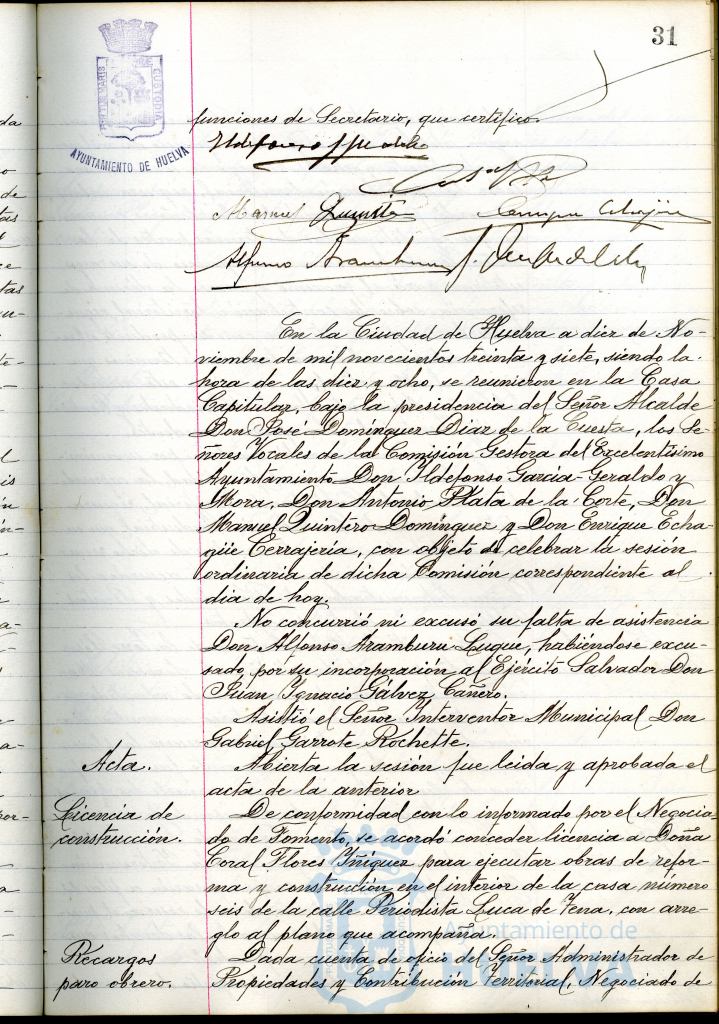 31
AYUNTAMIENTO DE HUELVA
funciones de Secretario, que certifico.
Manuel Quintero
Alfonso Aramburu
En la Ciudad de Huelva a diez de No-
viembre de mil novecientos treinta y siete, siendo la
hora de las diez y ocho, se reunieron en la Casa
Capitular, bajo la presidencia del Señor Alcalde
Don José Domínguez Diaz de la Cuesta, los Se-
ñores Vocales de la Comisión Gestora del Excelentísimo
Ayuntamiento Don Ildefonso García-Geraldo y
Mora, Don Antonio Plata de la Corte, Don
Manuel Quintero Domínguez y Don Enrique Echa-
güe Cerrajería, con objeto de celebrar la sesión
ordinaria de dicha Comisión correspondiente al
dia de hoy.
No concurrió ni excusó su falta de asistencia
Don Alfonso Aramburu Luque, habiéndose excu-
sado, por su incorporación al Ejército Salvador Don
Juan Ignacio Gálvez Cañero.
Asistió el Señor Interventor Municipal Don
Gabriel Garrote Rochette.
Acta.
Abierta la sesión fue leida y aprobada el
acta de la anterior
Licencia de
construcción.
De conformidad con lo informado por el Negocia-
do de Fomento, se acordó conceder licencia a Doña
Coral Flores Yñiguez para ejecutar obras de refor-
ma y construcción en el interior de la casa número
seis de la calle Periodista Luca de Tena, con arre-
glo al plano que acompaña.
Recargos
paro obrero.
Dada cuenta de oficio del Señor Administrador de
Propiedades y Contribución Territorial, Negociado de
Ayuntamiento de
HUELVA